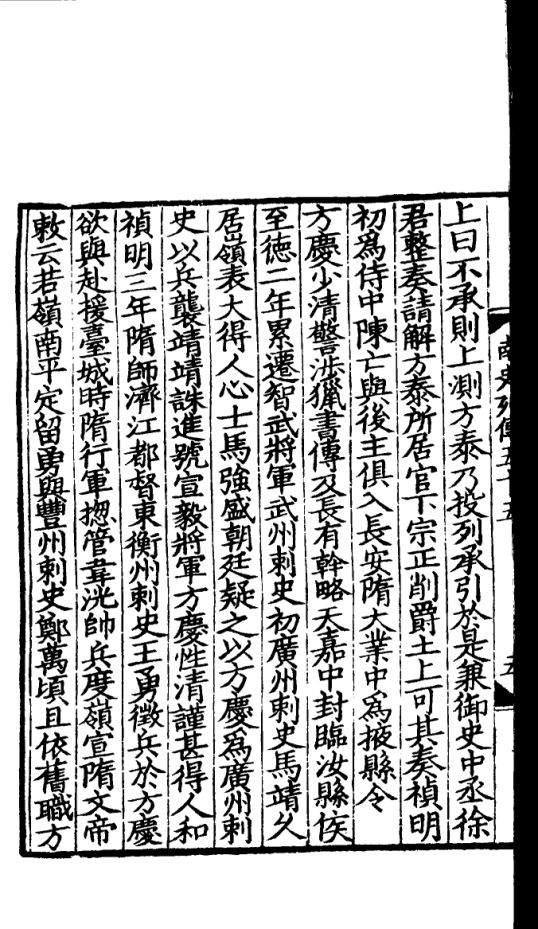 上曰不承則上測方泰乃投列承引於是兼御史中丞徐
君整奏請解方泰所居官下宗正削爵土上可其奏禎明
初爲侍中陳亡與後主俱入長安隋大業中爲掖縣令
方慶少清警涉獵書傳及長有幹略天嘉中封臨汝縣侯
至德二年累遷智武將軍武州刺史初廣州刺史馬靖久
居嶺表大得人心士馬強盛朝廷疑之以方慶爲廣州刺
史以兵襲靖靖誅進號宣毅將軍方慶性清謹甚得人和
禎明三年隋師濟江都督東衡州刺史王勇徵兵於方慶
欲與赴援臺城時隋行軍揔管韋洸帥兵度嶺宣隋文帝
敕云若嶺南平定留勇與豐州刺史鄭萬頃且依舊職方